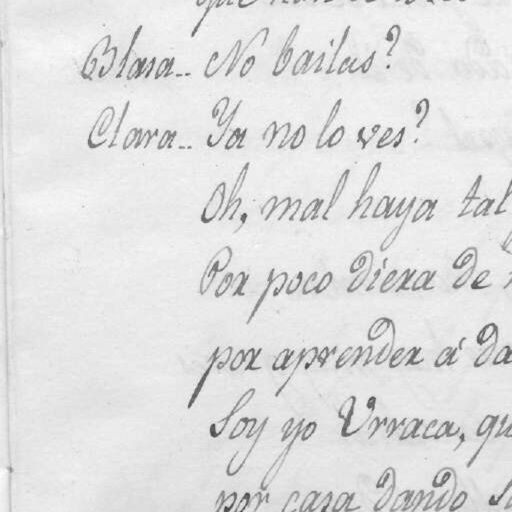 Blasa.. No bailas?
Clara.. Ya no lo ves?
Oh, mal haya tal
Por poco diera de
por aprender á da
Soy yo Urraca, qu
por casa dando